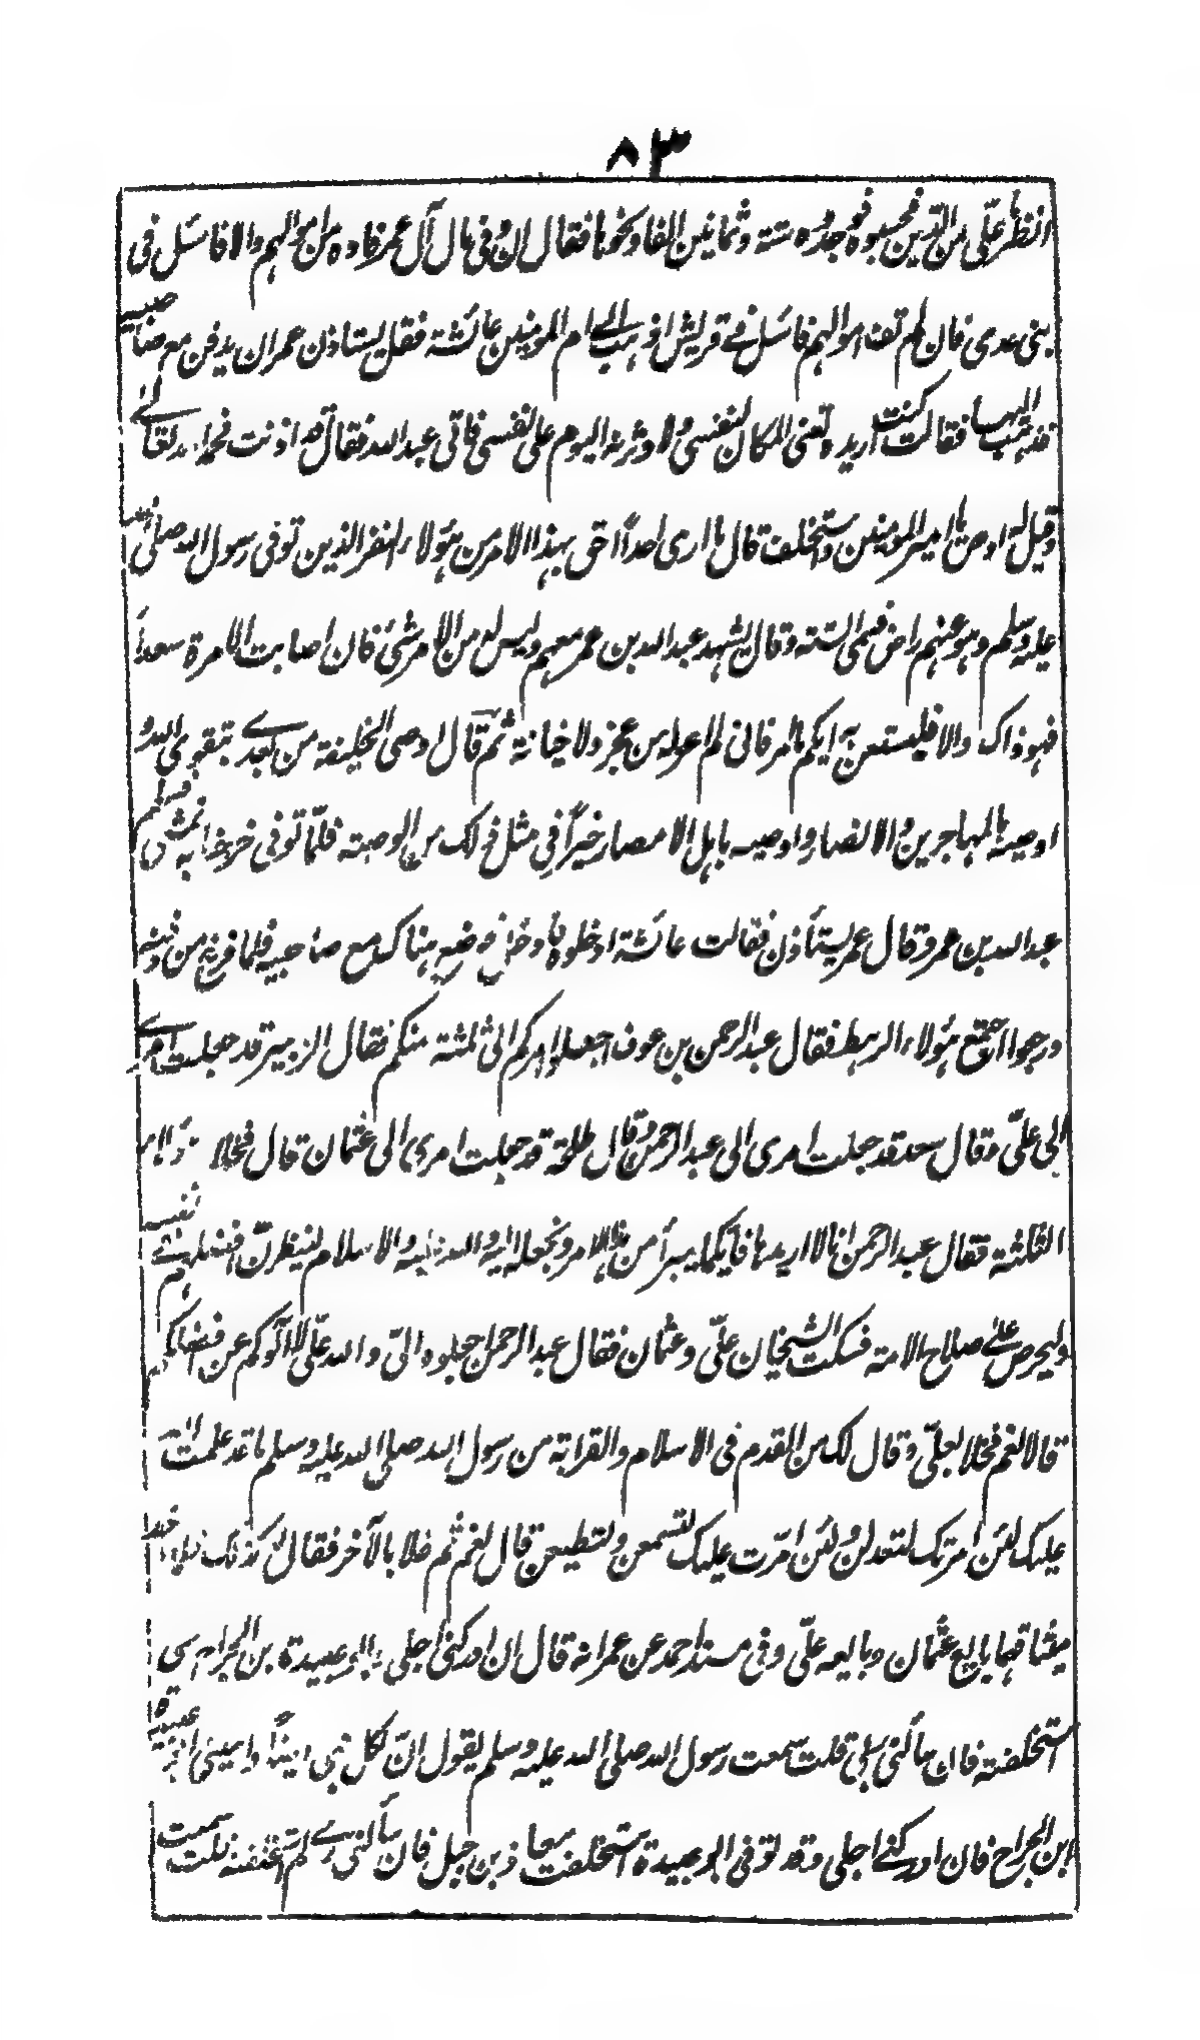 ٨٣
انظر ما علىّ من الدين فحسبوه فوجدوه ستة وثمانين الفا ونحوها فقال ان وفى مال آل عمر فاده من اموالهم والا فاسئل فى
بنى عدى فان لم تف اموالهم فاسئل فے قريش اذهب الے ام المؤمنين عائشة فقل يستاذن عمر ان يدفن مع صاحبيه
فذهب اليها فقالت كنت اريده تعنى المكان لنفسى ولاوثرنه اليوم على نفسى فاتى عبد الله فقال قد اذنت فحمد الله تعالے
وقيل له اوص يا امير المؤمنين واستخلف قال ما ارى احدا احق بهذا الامر من هؤلاء النفر الذين توفى رسول الله صلى الله
عليه وسلم وهو عنهم راض فسمى الستة وقال يشهد عبد الله بن عمر معهم وليس له من الامر شئ فان اصابت الامرة سعداً
فهو ذاك والا فليستعن به ايكم ما امر فانى لم اعزله من عجز ولا خيانة ثم قال اوصى الخليفة من بعدے بتقوى الله و
اوصيه بالمهاجرين والانصار واوصيه باهل الامصار خيراً فى مثل ذلك من الوصية فلما توفى خرجنا به نمشى فسلم
عبد الله بن عمر وقال عمر يستأذن فقالت عائشة ادخلوه فادخل فوضع هناك مع صاحبيه فلما فرغ من دفنه
ورجعوا اجتمع هؤلاء الرهط فقال عبد الرحمن بن عوف اجعلوا امركم الى ثلثة منكم فقال الزبير قد جعلت امرے
الى علىّ وقال سعد قد جعلت امرى الى عبد الرحمن وقال طلحة قد جعلت امرى الى عثمان قال فخلا هؤلاء
الثلثة فقال عبد الرحمن انا لا اريدها فايكما يبرأ من هذا الامر ونجعله اليه والله عليه والاسلام لينظرن افضلهم فے نفسه
وليحرص علے صلاح الامة فسكت الشيخان علىّ وعثمان فقال عبد الرحمن اجعلوه الىّ والله علىّ لا آلوكم عن افضلكم
قالا نعم فخلا بعلىّ وقال لك من القدم فى الاسلام والقرابة من رسول الله صلى الله عليه وسلم ما قد علمت الله
عليك لئن امرتك لتعدلن ولئن امّرت عليك لتسمعن ولتطيعن قال نعم ثم خلا بالآخر فقال له كذلك فلما اخذ
ميثاقهما بايع عثمان وبايعه علىّ وفى مسند احمد عن عمر انه قال ان ادركنى اجلى وابو عبيدة بن الجراح حى
استخلفته فان سألنى ربى قلت سمعت رسول الله صلى الله عليه وسلم يقول ان لكل نبى اميناً وامينى ابو عبيدة
ابن الجراح فان ادركنے اجلى وقد توفى ابو عبيدة استخلفت معاذ بن جبل فان سألنى ربے لم استخلفته قلت سمعت